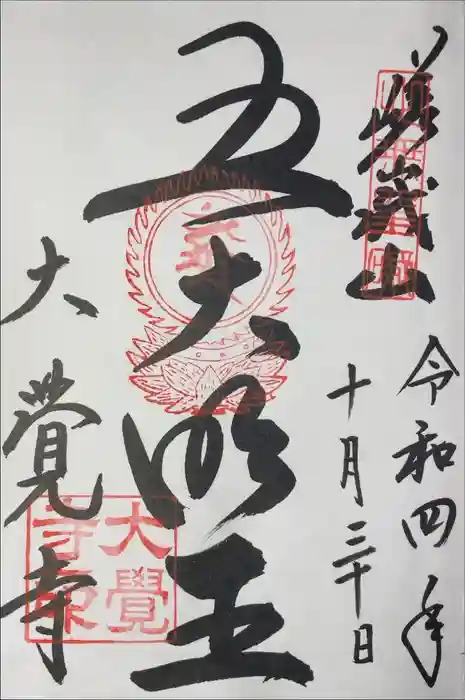 嵯峨山
令和四年
十月三十日
五大明王
大覺寺
大覺寺印